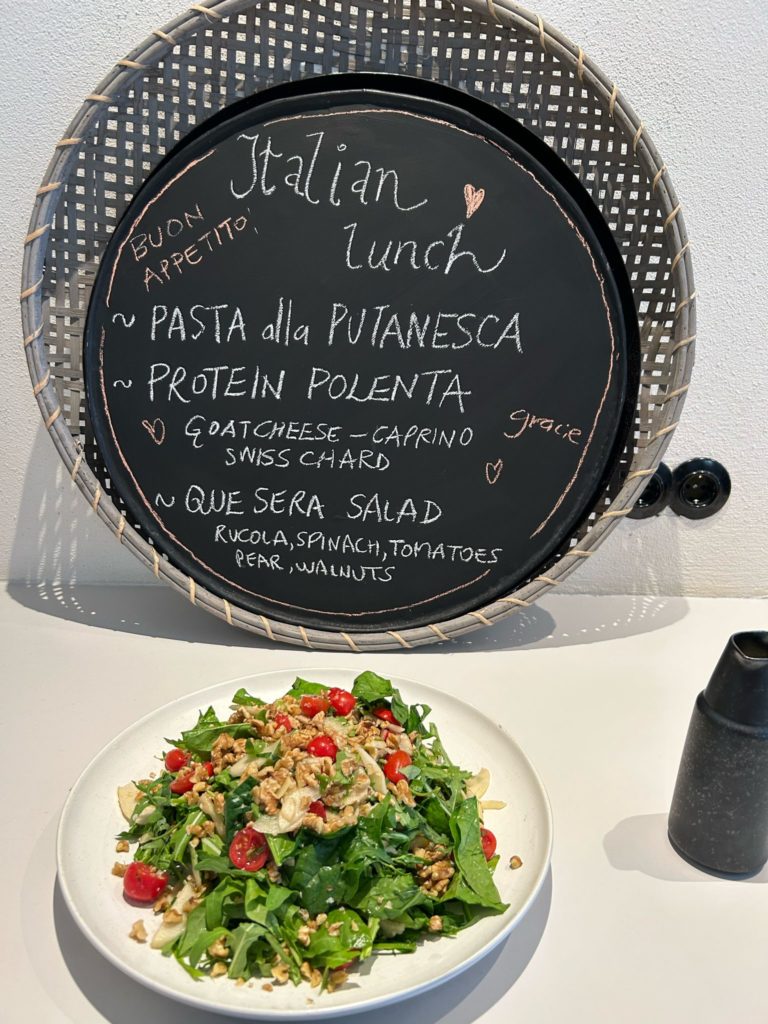 Italian
lunch
BUON
APPETITO!
~ PASTA alla PUTANESCA
~ PROTEIN POLENTA
GOATCHEESE – CAPRINO
SWISS CHARD
gracie
~ QUE SERA SALAD
RUCOLA, SPINACH, TOMATOES
PEAR, WALNUTS